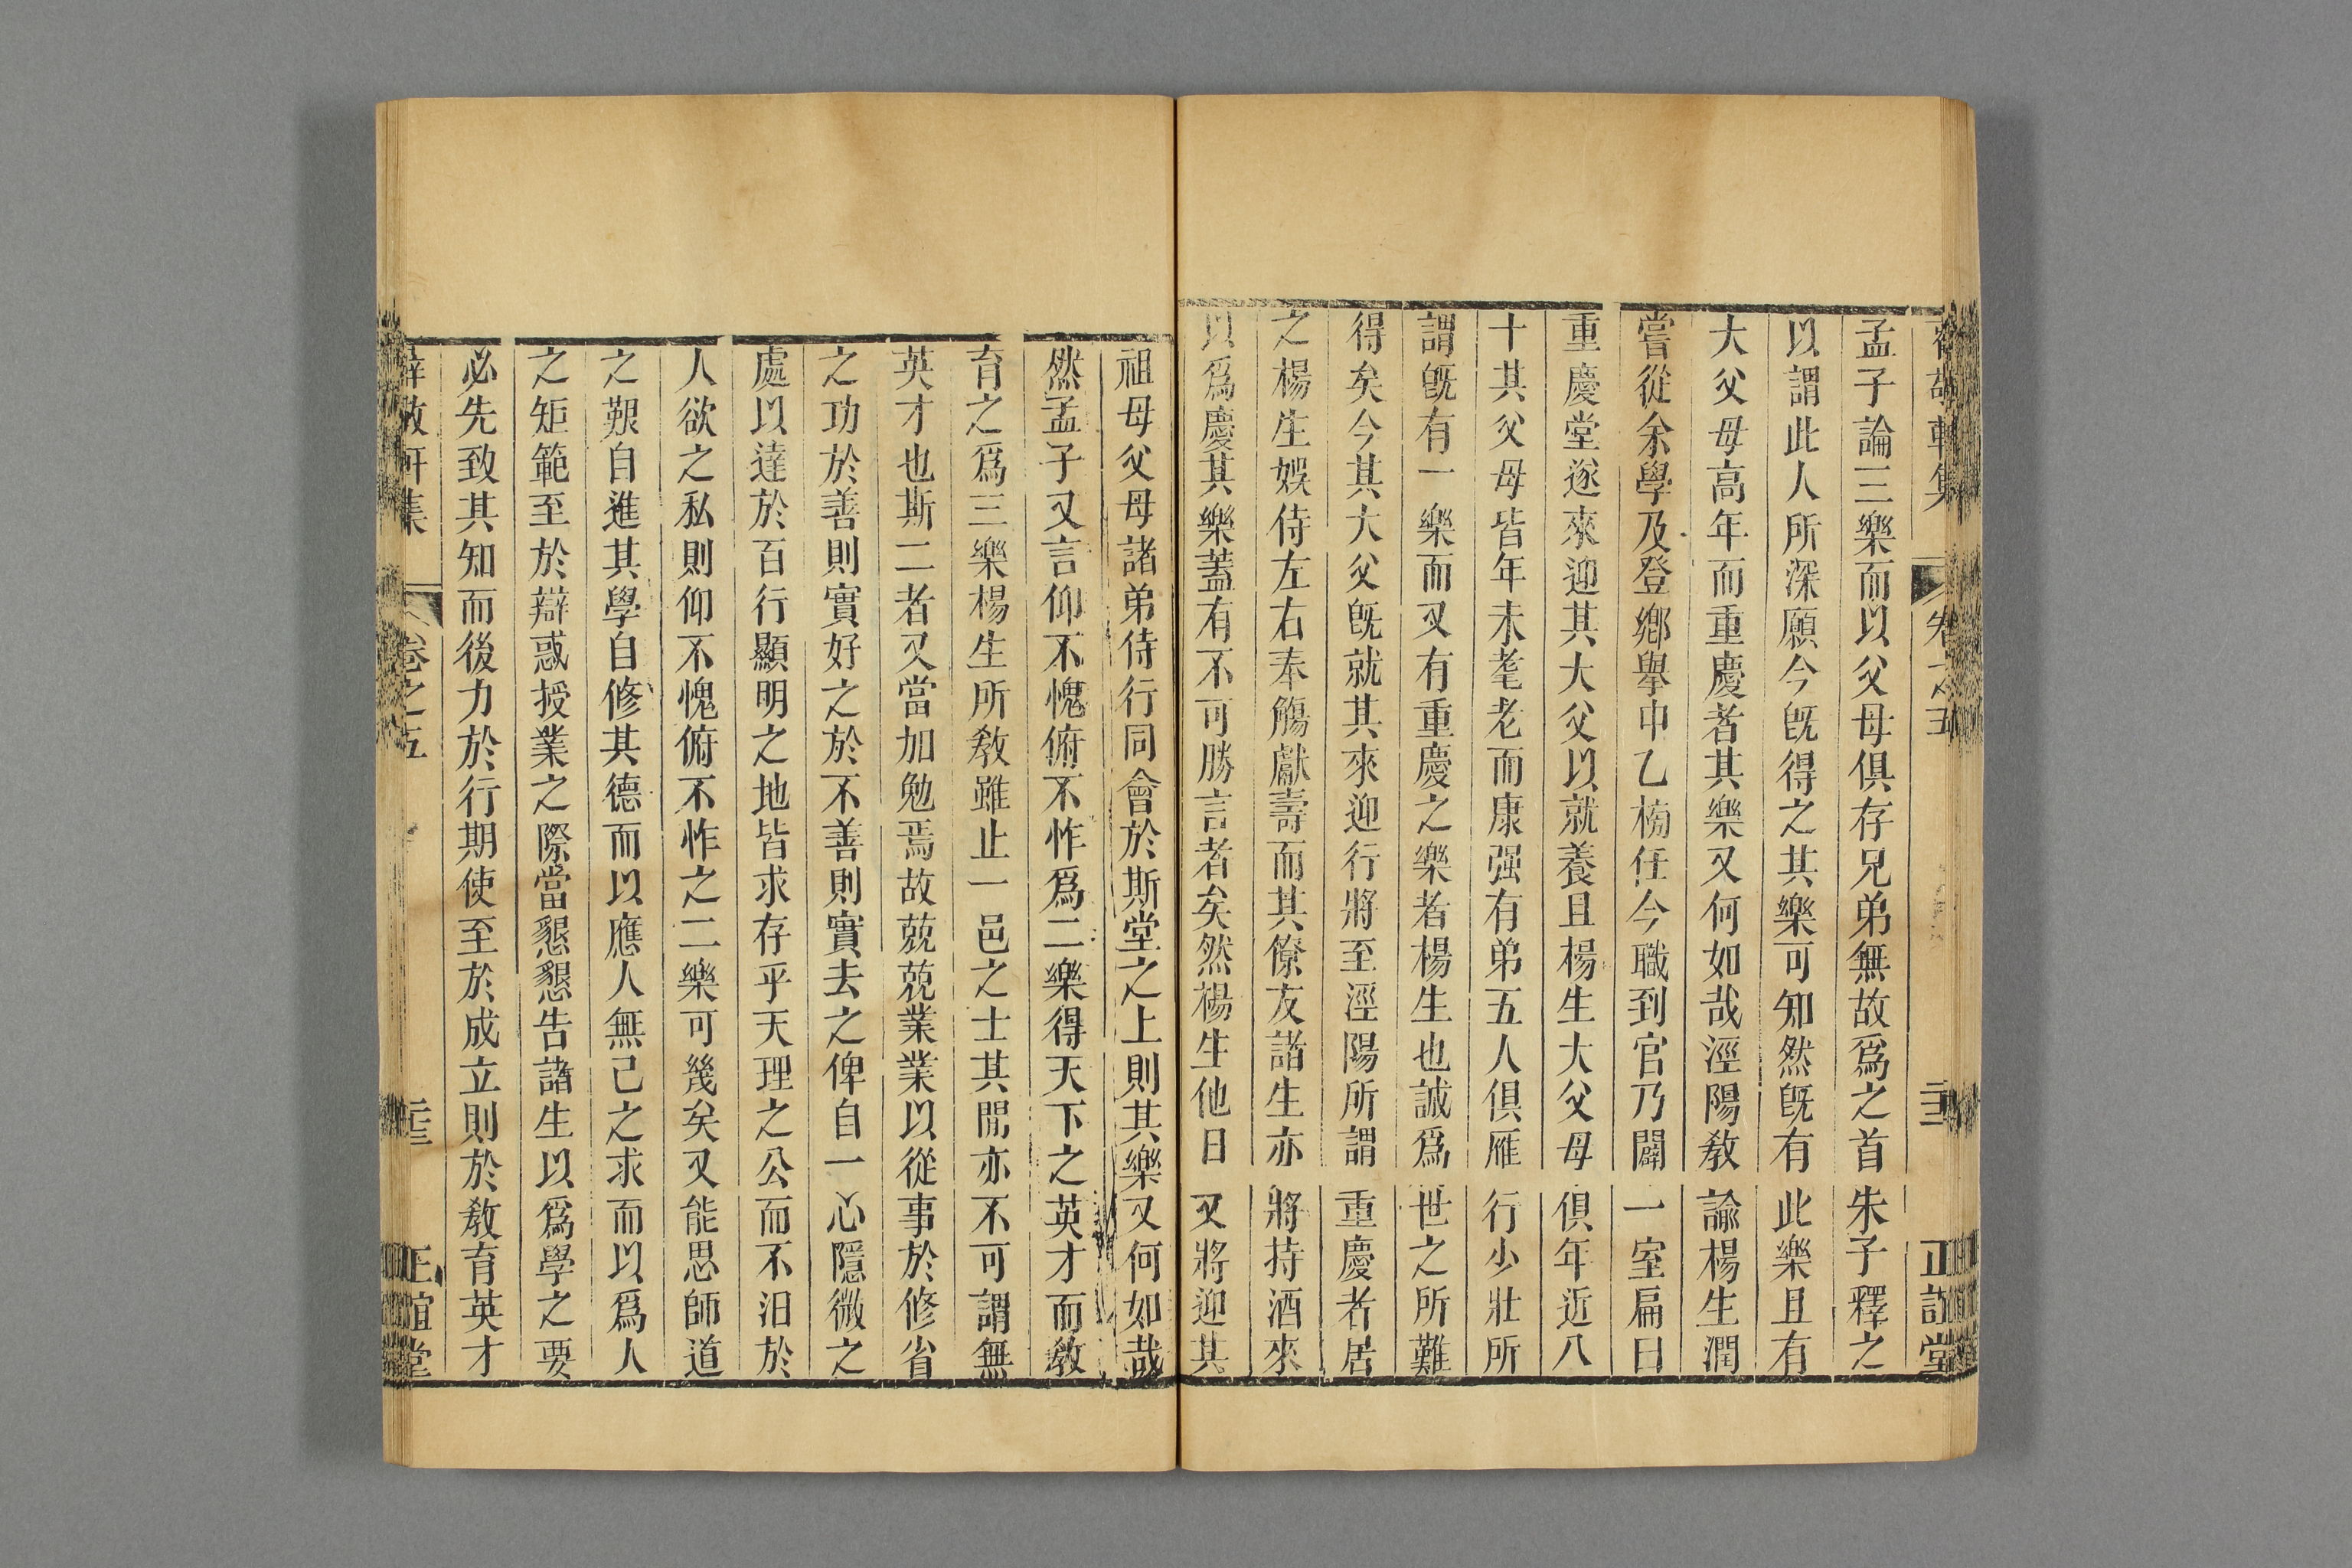 孟子論三樂而以父母俱存兄弟無故爲之首朱子釋之
以謂此人所深願今旣得之其樂可知然旣有此樂且有
大父母高年而重慶者其樂又何如哉涇陽敎諭楊生潤
嘗從余學及登鄉舉中乙榜任今職到官乃闢一室扁曰
重慶堂遂來迎其大父以就養且楊生大父母俱年近八
十其父母皆年未耄老而康强有弟五人俱雁行少壯所
謂旣有一樂而又有重慶之樂者楊生也誠爲世之所難
得矣今其大父旣就其來迎行將至涇陽所謂重慶者居
之楊生娛侍左右奉觴獻壽而其僚友諸生亦將持酒來
以爲慶其樂蓋有不可勝言者矣然楊生他日又將迎其
祖母父母諸弟侍行同會於斯堂之上則其樂又何如哉
然孟子又言仰不愧俯不怍爲二樂得天下之英才而敎
育之爲三樂楊生所敎雖止一邑之士其閒亦不可謂無
英才也斯二者又當加勉焉故兢兢業業以從事於修省
之功於善則實好之於不善則實去之俾自一心隱微之
處以達於百行顯明之地皆求存乎天理之公而不汨於
人欲之私則仰不愧俯不怍之二樂可幾矣又能思師道
之艱自進其學自修其德而以應人無已之求而以爲人
之矩範至於辯惑授業之際當懇懇告諸生以爲學之要
必先致其知而後力於行期使至於成立則於敎育英才
敬軒集 卷之五 正誼堂